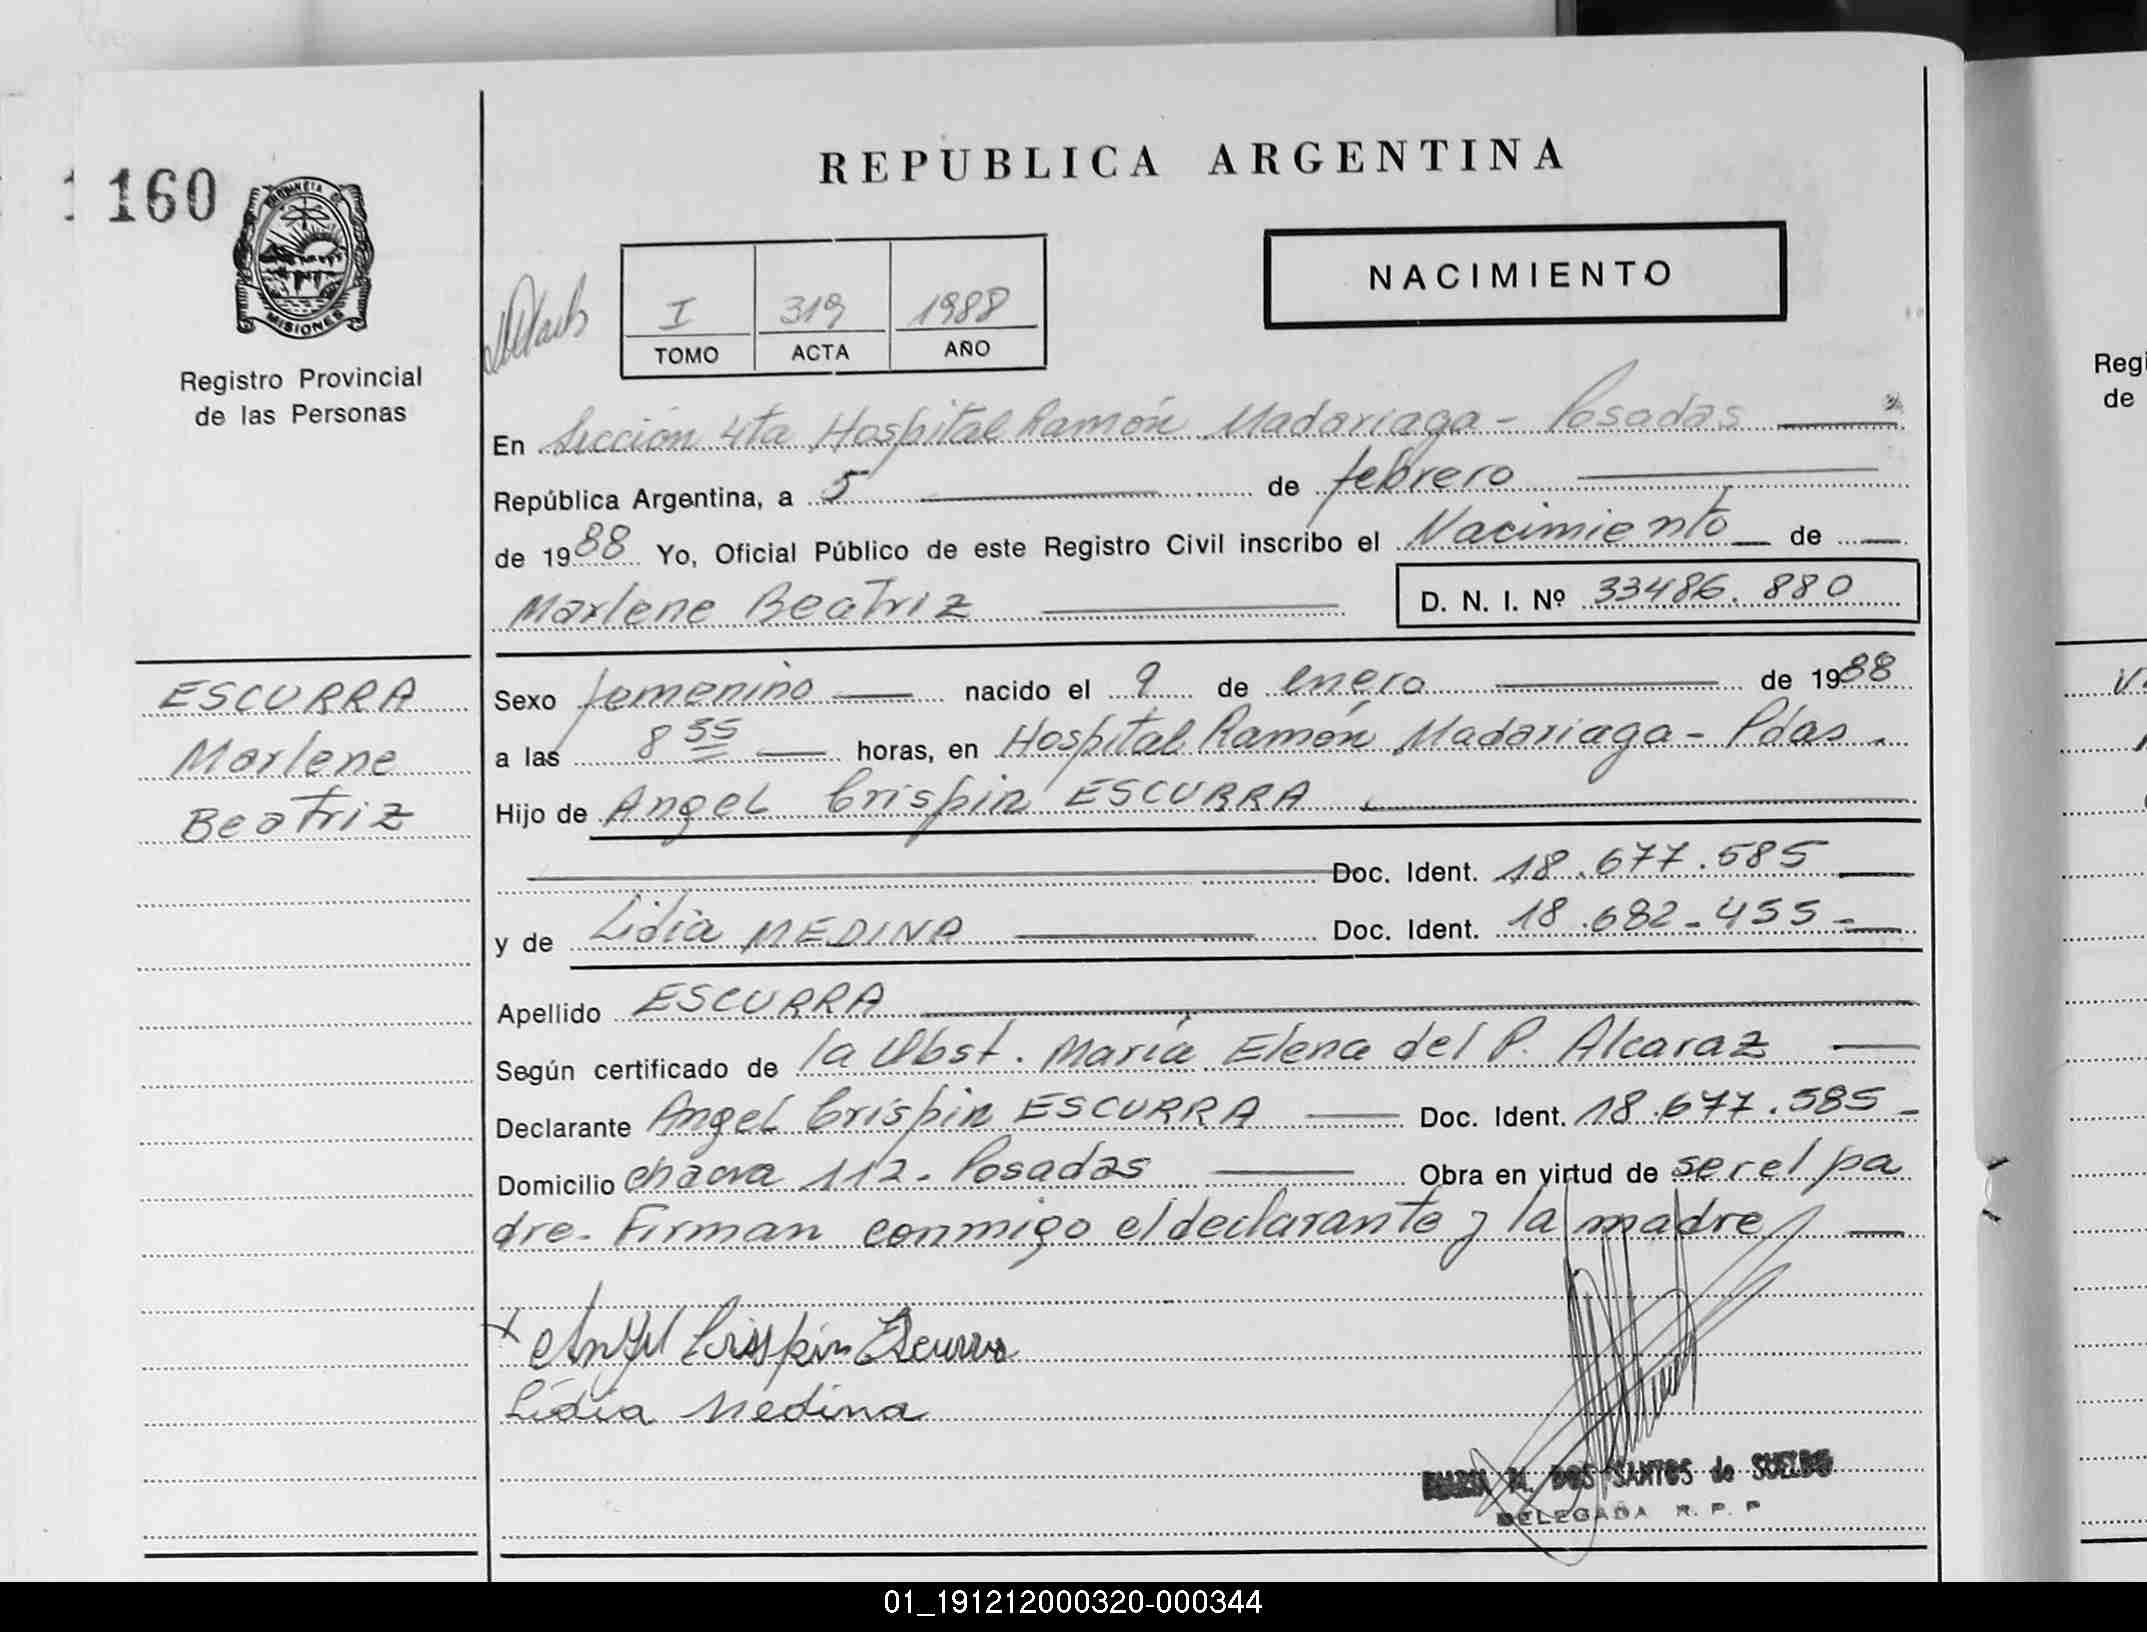 160
PROVINCIA DE
MISIONES
Registro Provincial
de las Personas
REPUBLICA ARGENTINA
NACIMIENTO
I 319 1988
TOMO ACTA AÑO
En Sección 4ta Hospital Ramón Madariaga - Posadas
República Argentina, a 5 de febrero
de 1988 Yo, Oficial Público de este Registro Civil inscribo el Nacimiento de
Marlene Beatriz D. N. I. Nº 33486.880
ESCURRA
Marlene
Beatriz
Sexo femenino nacido el 9 de enero de 1988
a las 8 35 horas, en Hospital Ramón Madariaga - Pdas.
Hijo de Angel Crispin ESCURRA
Doc. Ident. 18.677.585
y de Lidia MEDINA Doc. Ident. 18.682-455-
Apellido ESCURRA
Según certificado de la Obst. María Elena del P. Alcaraz
Declarante Angel Crispin ESCURRA Doc. Ident. 18.677.585-
Domicilio chacra 112 - Posadas Obra en virtud de ser el pa
dre - Firman conmigo el declarante y la madre
Angel Crisspin Escurra
Lidia Medina
M. DOS SANTOS de SUELDO
DELEGADA R. P. P
Regi
de
01_191212000320-000344